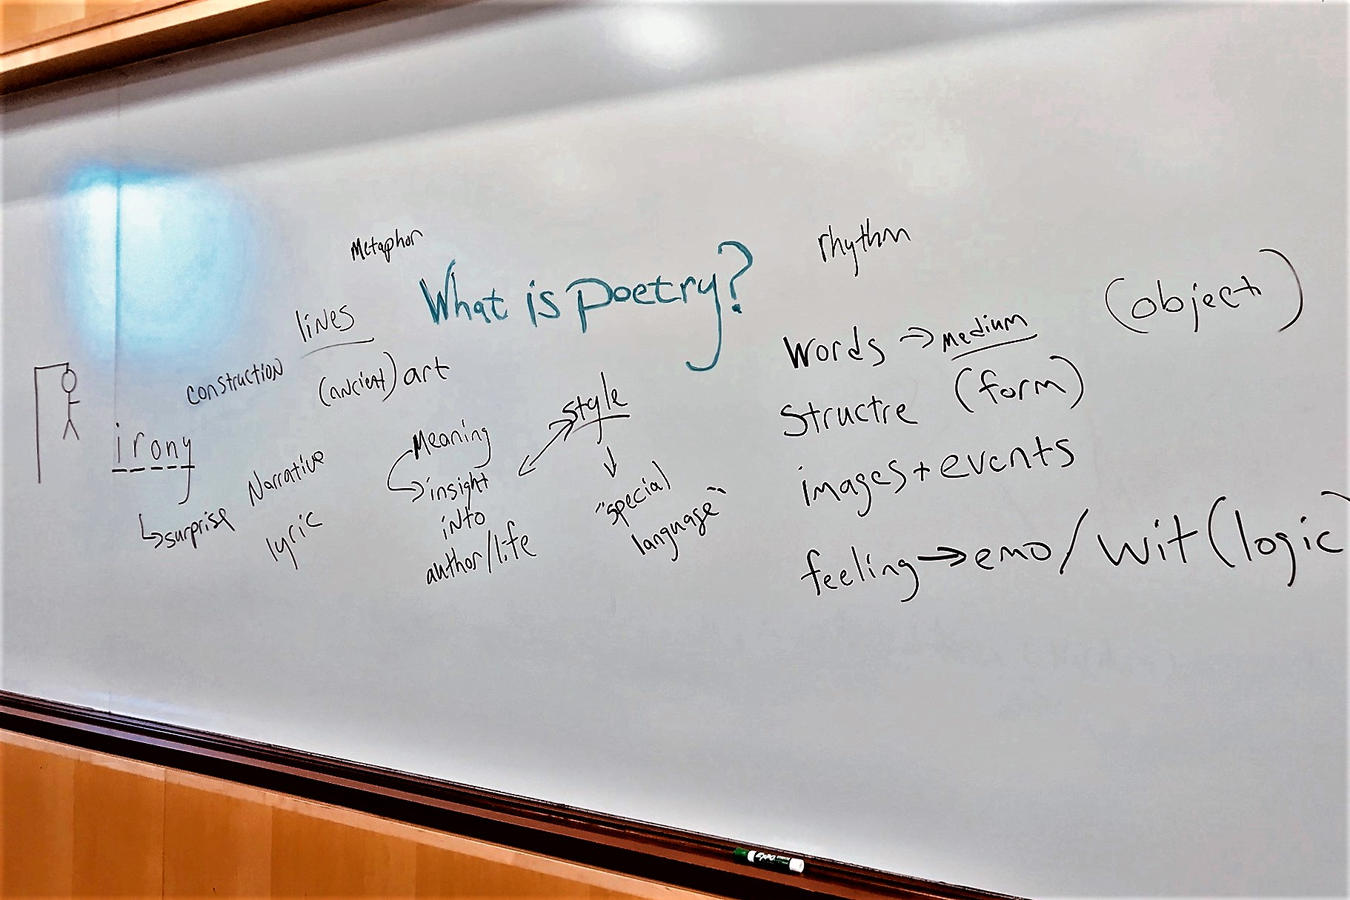 Metaphor
rhythm
What is poetry?
(object)
lines
words → medium
construction
(ancient) art
style
Structre (form)
irony
Meaning
Narrative
images + events
insight
"special
surprise
lyric
into
language"
author/life
feeling → emo/wit (logic)
EXPO